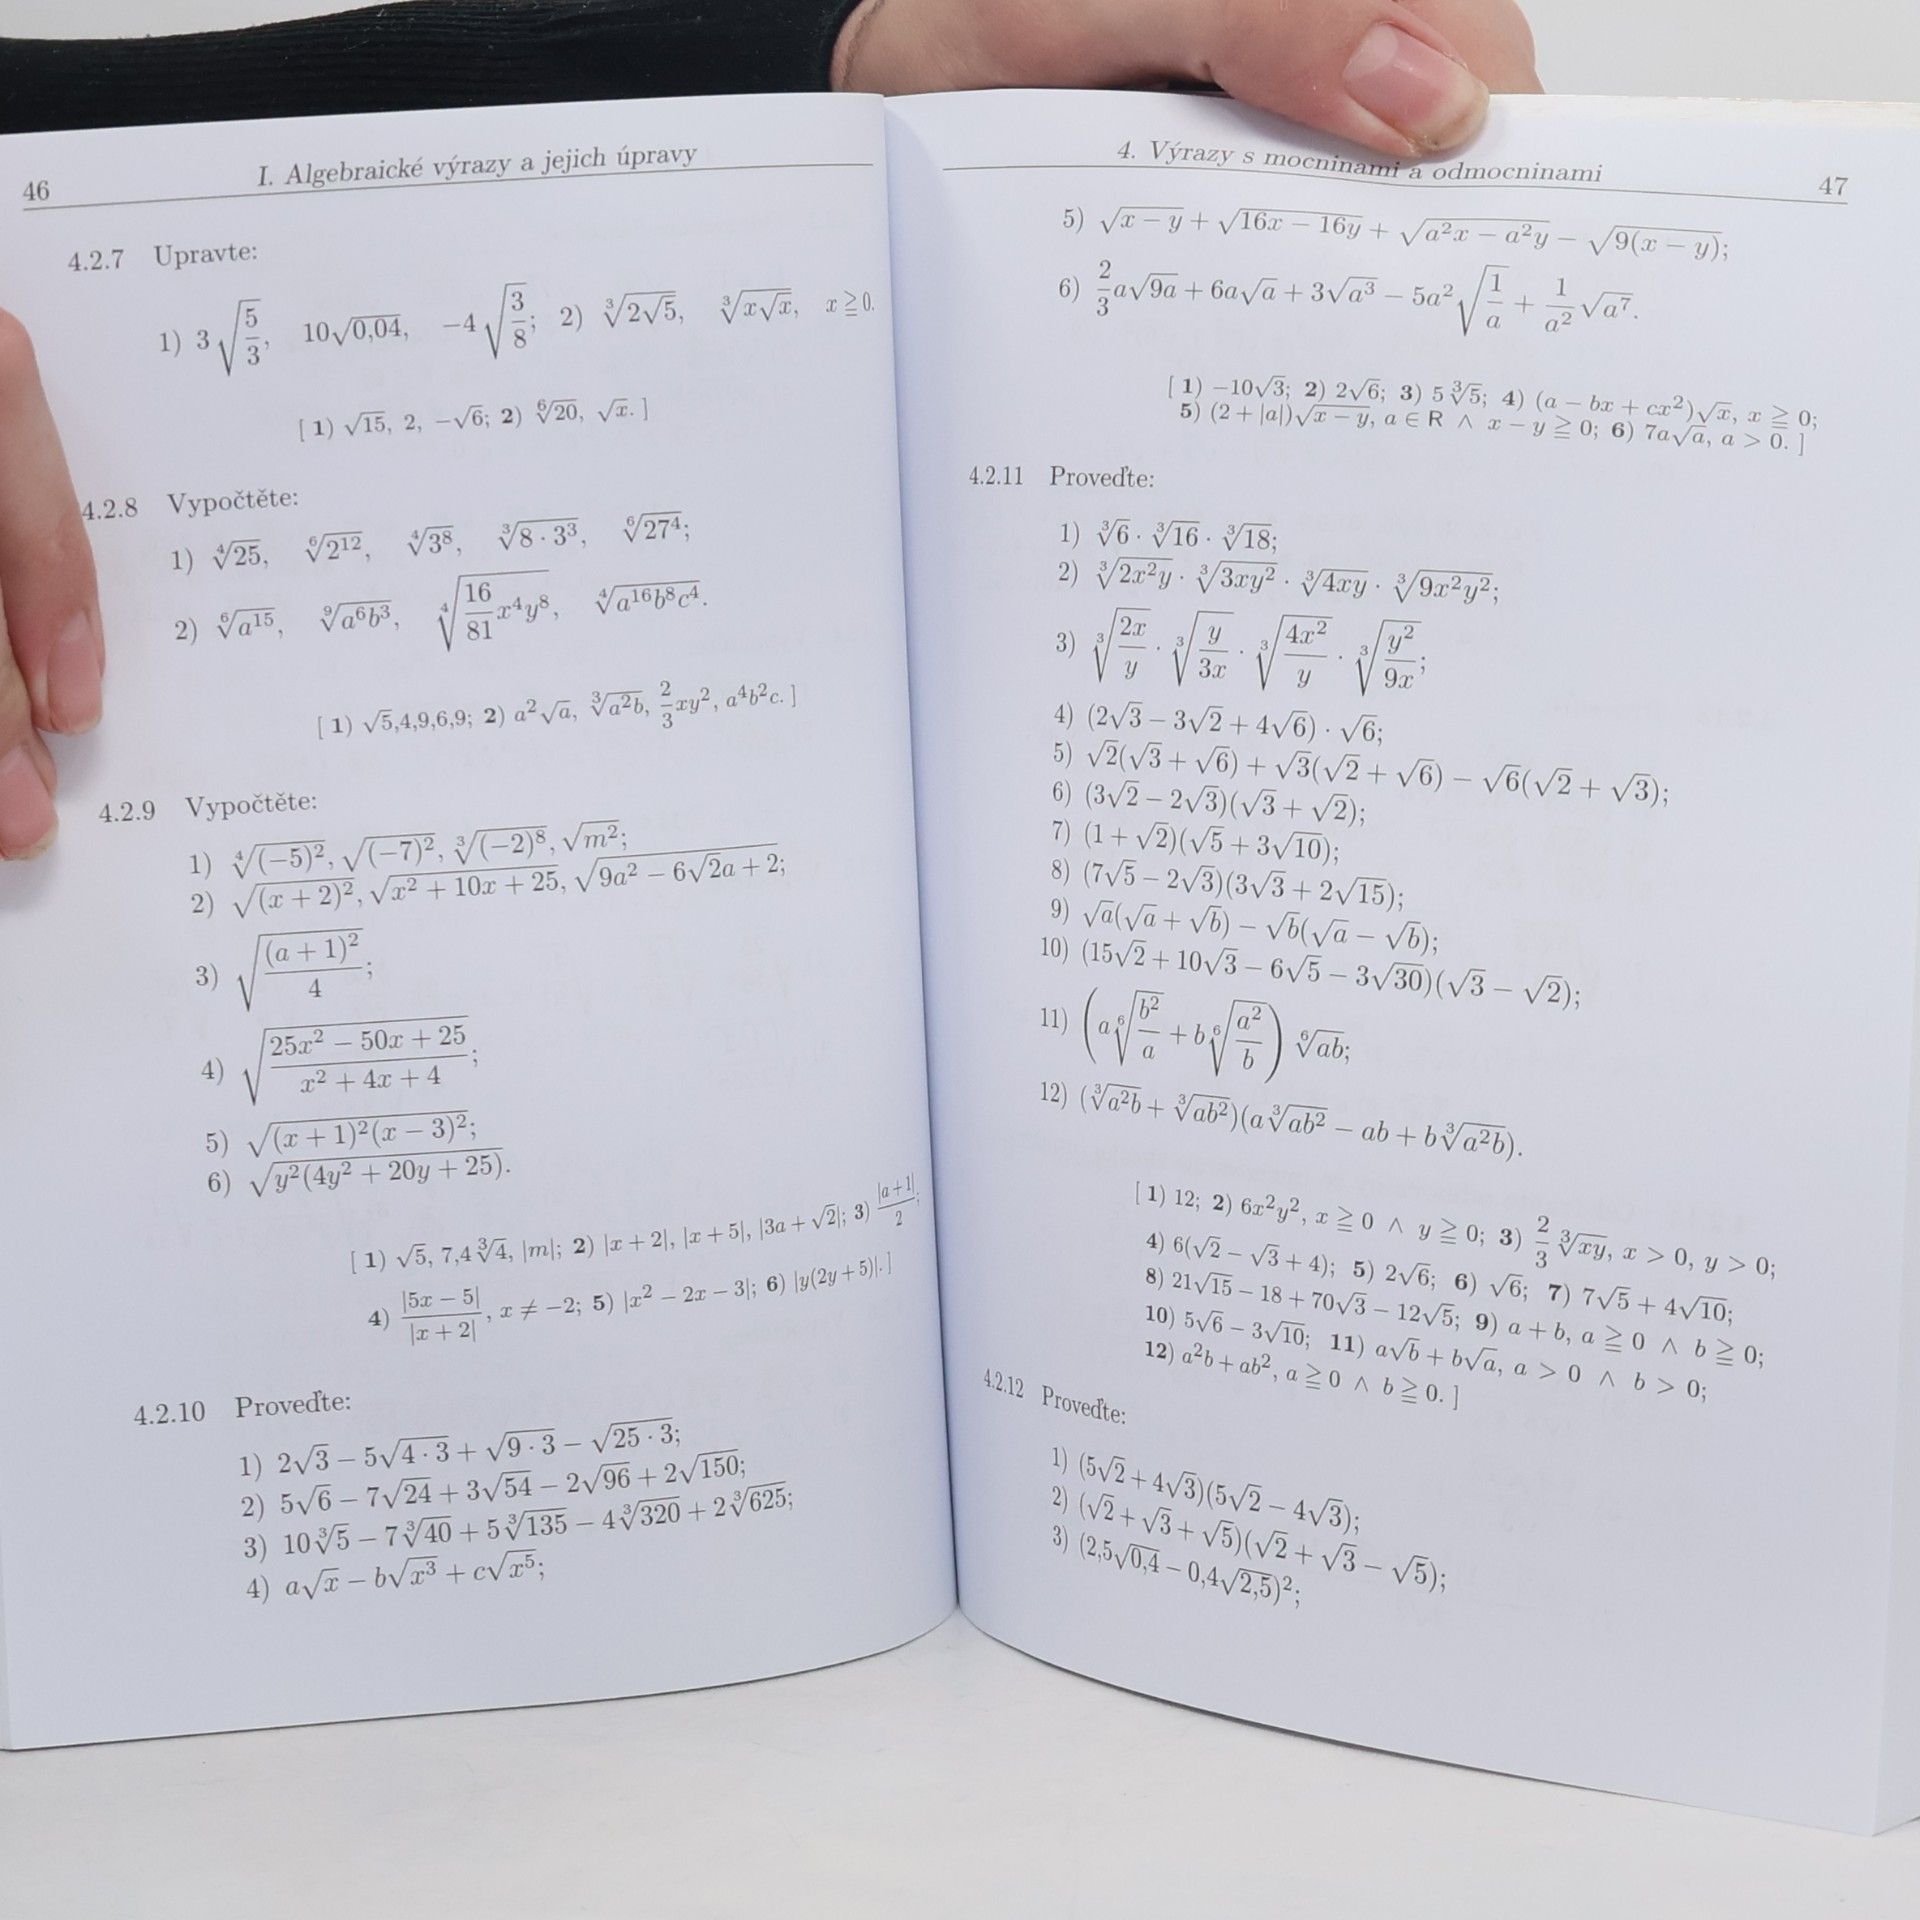 46 I. Algebraické výrazy a jejich úpravy
4.2.7 Upravte:
1) 3√(5/3), 10√0,04, −4√(3/8); 2) ∛(2√5), ∛(x√x), x ≧ 0.
[ 1) √15, 2, −√6; 2) ⁶√20, √x. ]
4.2.8 Vypočtěte:
1) ⁴√25, ⁶√2¹², ⁴√3⁸, ∛(8 · 3³), ⁶√27⁴;
2) ⁶√a¹⁵, ⁹√(a⁶b³), ⁴√((16/81)x⁴y⁸), ⁴√(a¹⁶b⁸c⁴).
[ 1) √5,4,9,6,9; 2) a²√a, ∛(a²b), (2/3)xy², a⁴b²c. ]
4.2.9 Vypočtěte:
1) ⁴√(−5)², √(−7)², ∛(−2)⁸, √m²;
2) √(x + 2)², √(x² + 10x + 25), √(9a² − 6√2a + 2);
3) √((a + 1)²/4);
4) √((25x² − 50x + 25)/(x² + 4x + 4));
5) √((x + 1)²(x − 3)²);
6) √(y²(4y² + 20y + 25)).
[ 1) √5, 7,4∛4, |m|; 2) |x + 2|, |x + 5|, |3a + √2|; 3) |a+1|/2;
4) |5x − 5|/|x + 2|, x ≠ −2; 5) |x² − 2x − 3|; 6) |y(2y + 5)|. ]
4.2.10 Proveďte:
1) 2√3 − 5√(4 · 3) + √(9 · 3) − √(25 · 3);
2) 5√6 − 7√24 + 3√54 − 2√96 + 2√150;
3) 10∛5 − 7∛40 + 5∛135 − 4∛320 + 2∛625;
4) a√x − b√x³ + c√x⁵;
4. Výrazy s mocninami a odmocninami 47
5) √(x − y) + √(16x − 16y) + √(a²x − a²y) − √(9(x − y));
6) (2/3)a√(9a) + 6a√a + 3√a³ − 5a²√(1/a) + (1/a²)√a⁷.
[ 1) −10√3; 2) 2√6; 3) 5∛5; 4) (a − bx + cx²)√x, x ≧ 0;
5) (2 + |a|)√(x − y), a ∈ R ∧ x − y ≧ 0; 6) 7a√a, a > 0. ]
4.2.11 Proveďte:
1) ∛6 · ∛16 · ∛18;
2) ∛(2x²y) · ∛(3xy²) · ∛(4xy) · ∛(9x²y²);
3) ∛(2x/y) · ∛(y/3x) · ∛(4x²/y) · ∛(y²/9x);
4) (2√3 − 3√2 + 4√6) · √6;
5) √2(√3 + √6) + √3(√2 + √6) − √6(√2 + √3);
6) (3√2 − 2√3)(√3 + √2);
7) (1 + √2)(√5 + 3√10);
8) (7√5 − 2√3)(3√3 + 2√15);
9) √a(√a + √b) − √b(√a − √b);
10) (15√2 + 10√3 − 6√5 − 3√30)(√3 − √2);
11) (a ⁶√(b²/a) + b ⁶√(a²/b)) ⁶√(ab);
12) (∛(a²b) + ∛(ab²))(a∛(ab²) − ab + b∛(a²b)).
[ 1) 12; 2) 6x²y², x ≧ 0 ∧ y ≧ 0; 3) (2/3)∛(xy), x > 0, y > 0;
4) 6(√2 − √3 + 4); 5) 2√6; 6) √6; 7) 7√5 + 4√10;
8) 21√15 − 18 + 70√3 − 12√5; 9) a + b, a ≧ 0 ∧ b ≧ 0;
10) 5√6 − 3√10; 11) a√b + b√a, a > 0 ∧ b > 0;
12) a²b + ab², a ≧ 0 ∧ b ≧ 0. ]
4.2.12 Proveďte:
1) (5√2 + 4√3)(5√2 − 4√3);
2) (√2 + √3 + √5)(√2 + √3 − √5);
3) (2,5√0,4 − 0,4√2,5)²;